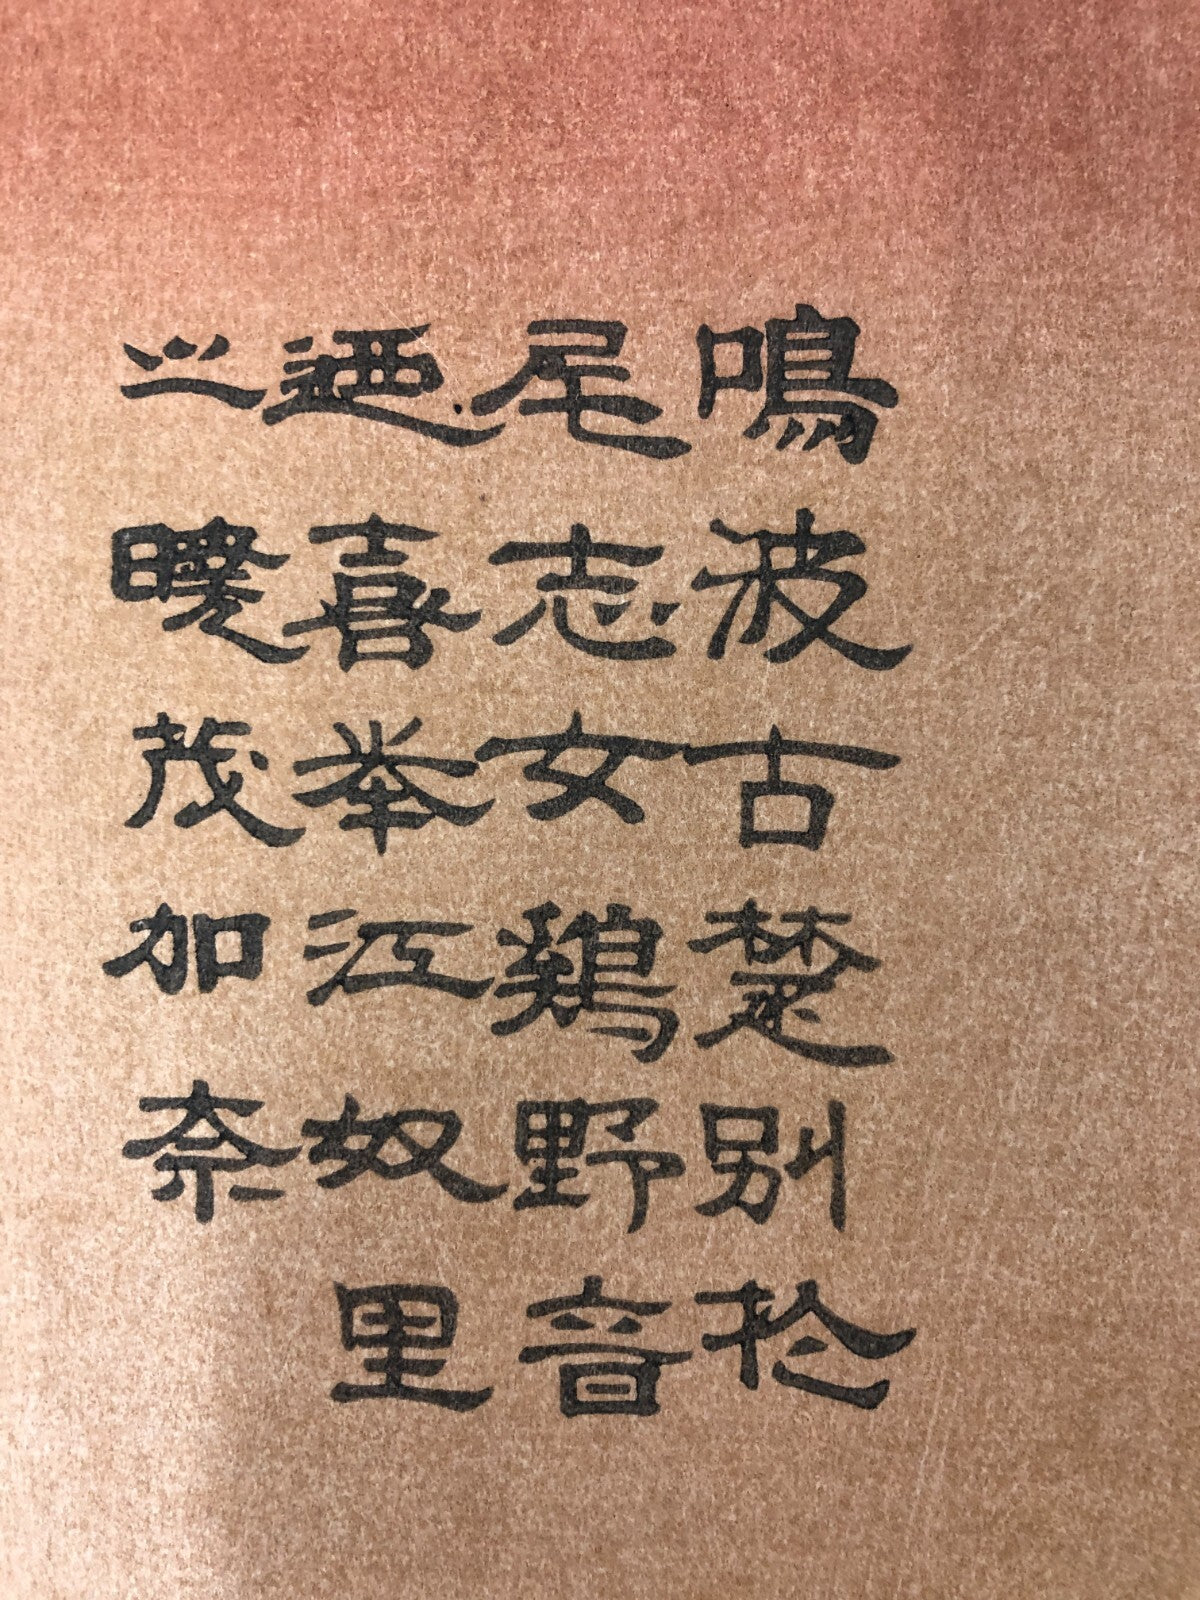 鳴波古楚別扵
尾志女鶏野音
迺喜挙江奴里
之暁茂加奈